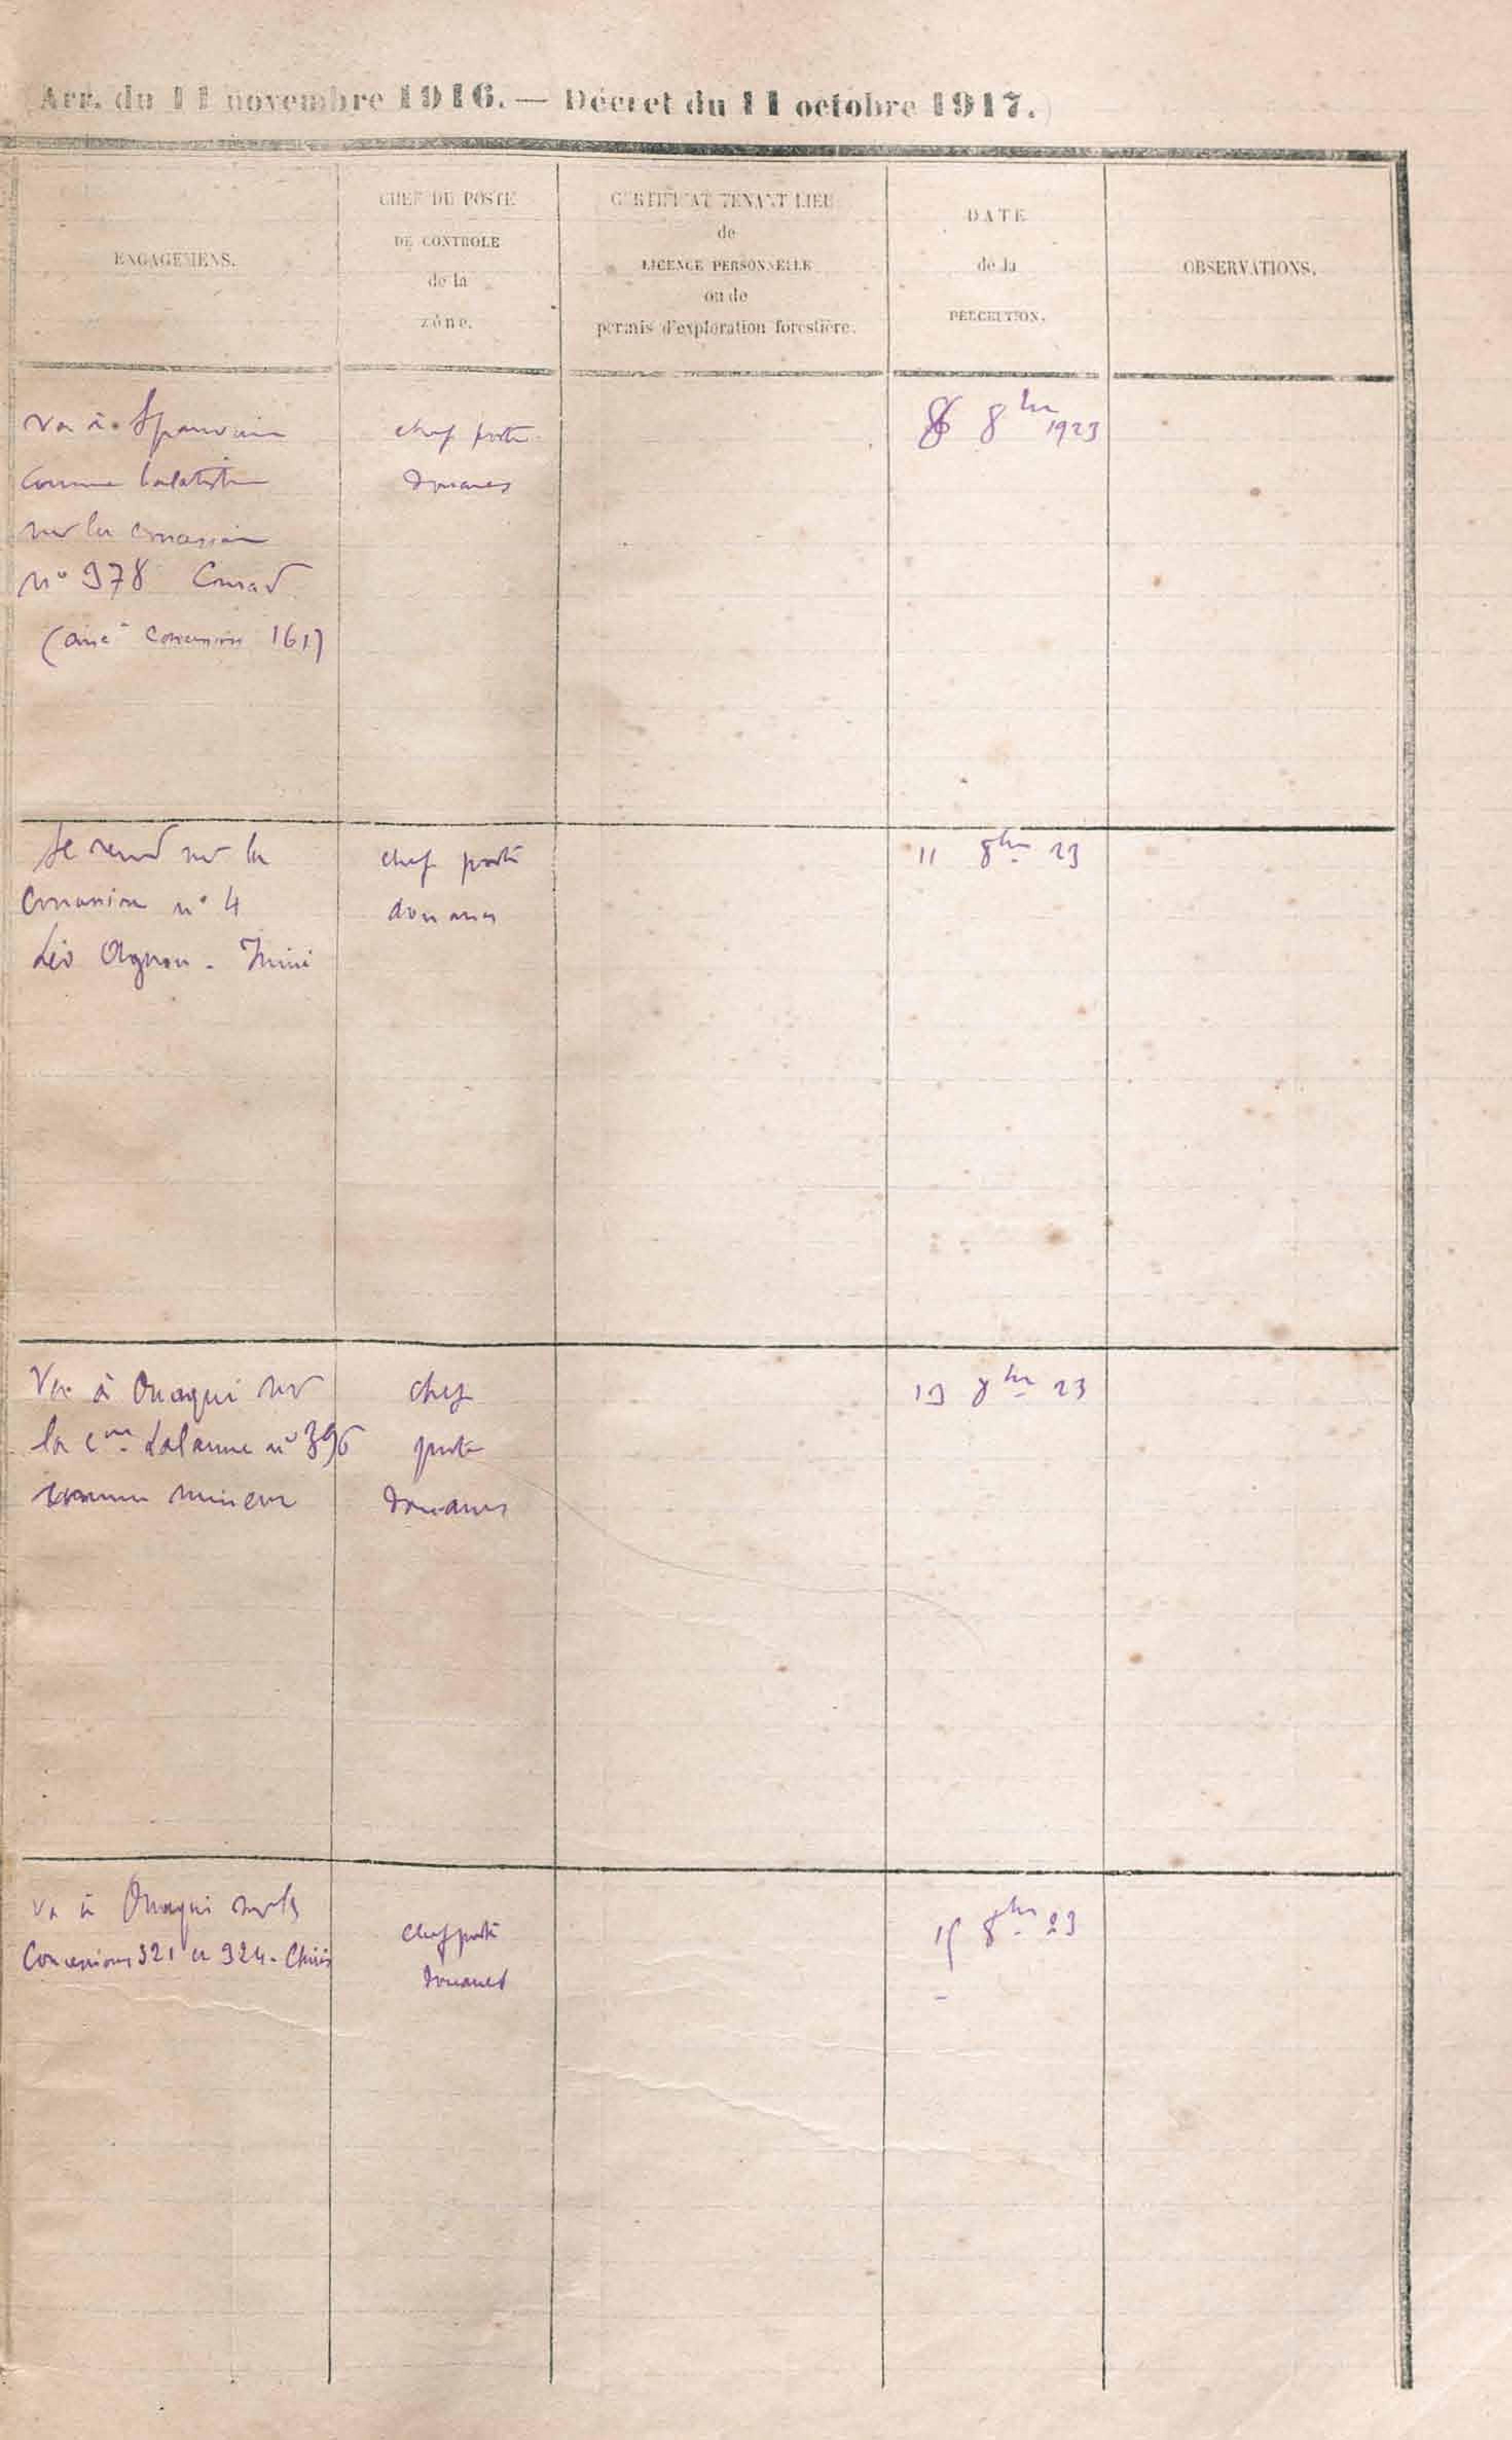 Arr. du 11 novembre 1916. — Décret du 11 octobre 1917.)
ENGAGEMENS.
CHEF DE POSTE
DE CONTROLE
de la
zône.
CERTIFICAT TENANT LIEU
de
LICENCE PERSONNELLE
ou de
permis d'exploration forestière.
DATE
de la
PERCEPTION.
OBSERVATIONS.
va à Sparwine
comme balatiste
sur la concession
n° 978 Conrad
(anc^ne concession 161)
chef poste
douanes
8 8bre 1923
Se rend sur la
concession n° 4
Léo Agnou - Inini
chef poste
douanes
11 8bre 23
Va à Ouaqui sur
la c^on Lalanne n° 396
comme mineur
chef
poste
douanes
13 8bre 23
va à Ouaqui sur les
Concessions 321 et 324 - Chiris
chef poste
douanes
15 8bre 23